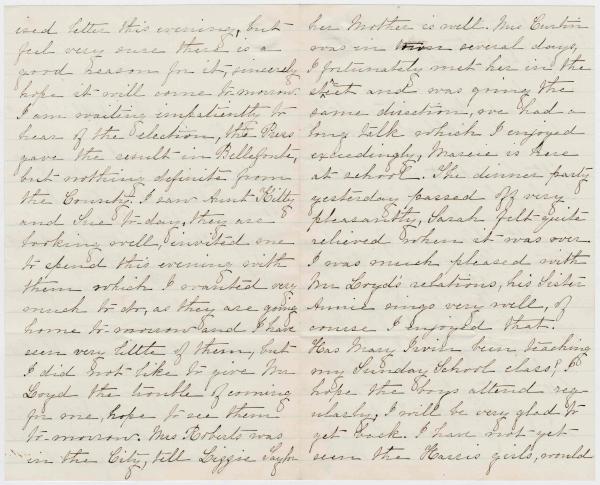 ised letter this evening, but
feel very sure there is a
good reason for it, sincerely
hope it will come to-morrow.
I am waiting impatiently to
hear of the election, the Press
gave the result in Bellefonte,
but nothing definite from
the County. I saw Aunt Kitty
and Sue to-day, they are
looking well, invited me
to spend this evening with
them which I wanted very
much to do, as they are going
home to-morrow and I have
seen very little of them, but
I did not like to give Mr
Loyd the trouble of coming
for me, hope to see them
to-morrow. Mrs Roberts was
in the City, tell Lizzie Taylor
her Mother is well. Mrs Curtin
was in town several days,
I fortunately met her in the
street and was going the
same direction, we had a
long talk which I enjoyed
exceedingly, is here
at school. The dinner party
yesterday passed off very
pleasantly, Sarah felt quite
relieved when it was over
I was much pleased with
Mr Loyd's relations, his Sister
Annie sings very well, of
course I enjoyed that.
Has Mary Irvin been teaching
my Sunday School class? I
hope the boys attend reg
ularly, I will be very glad to
get back. I have not yet
seen the Harris girls, would